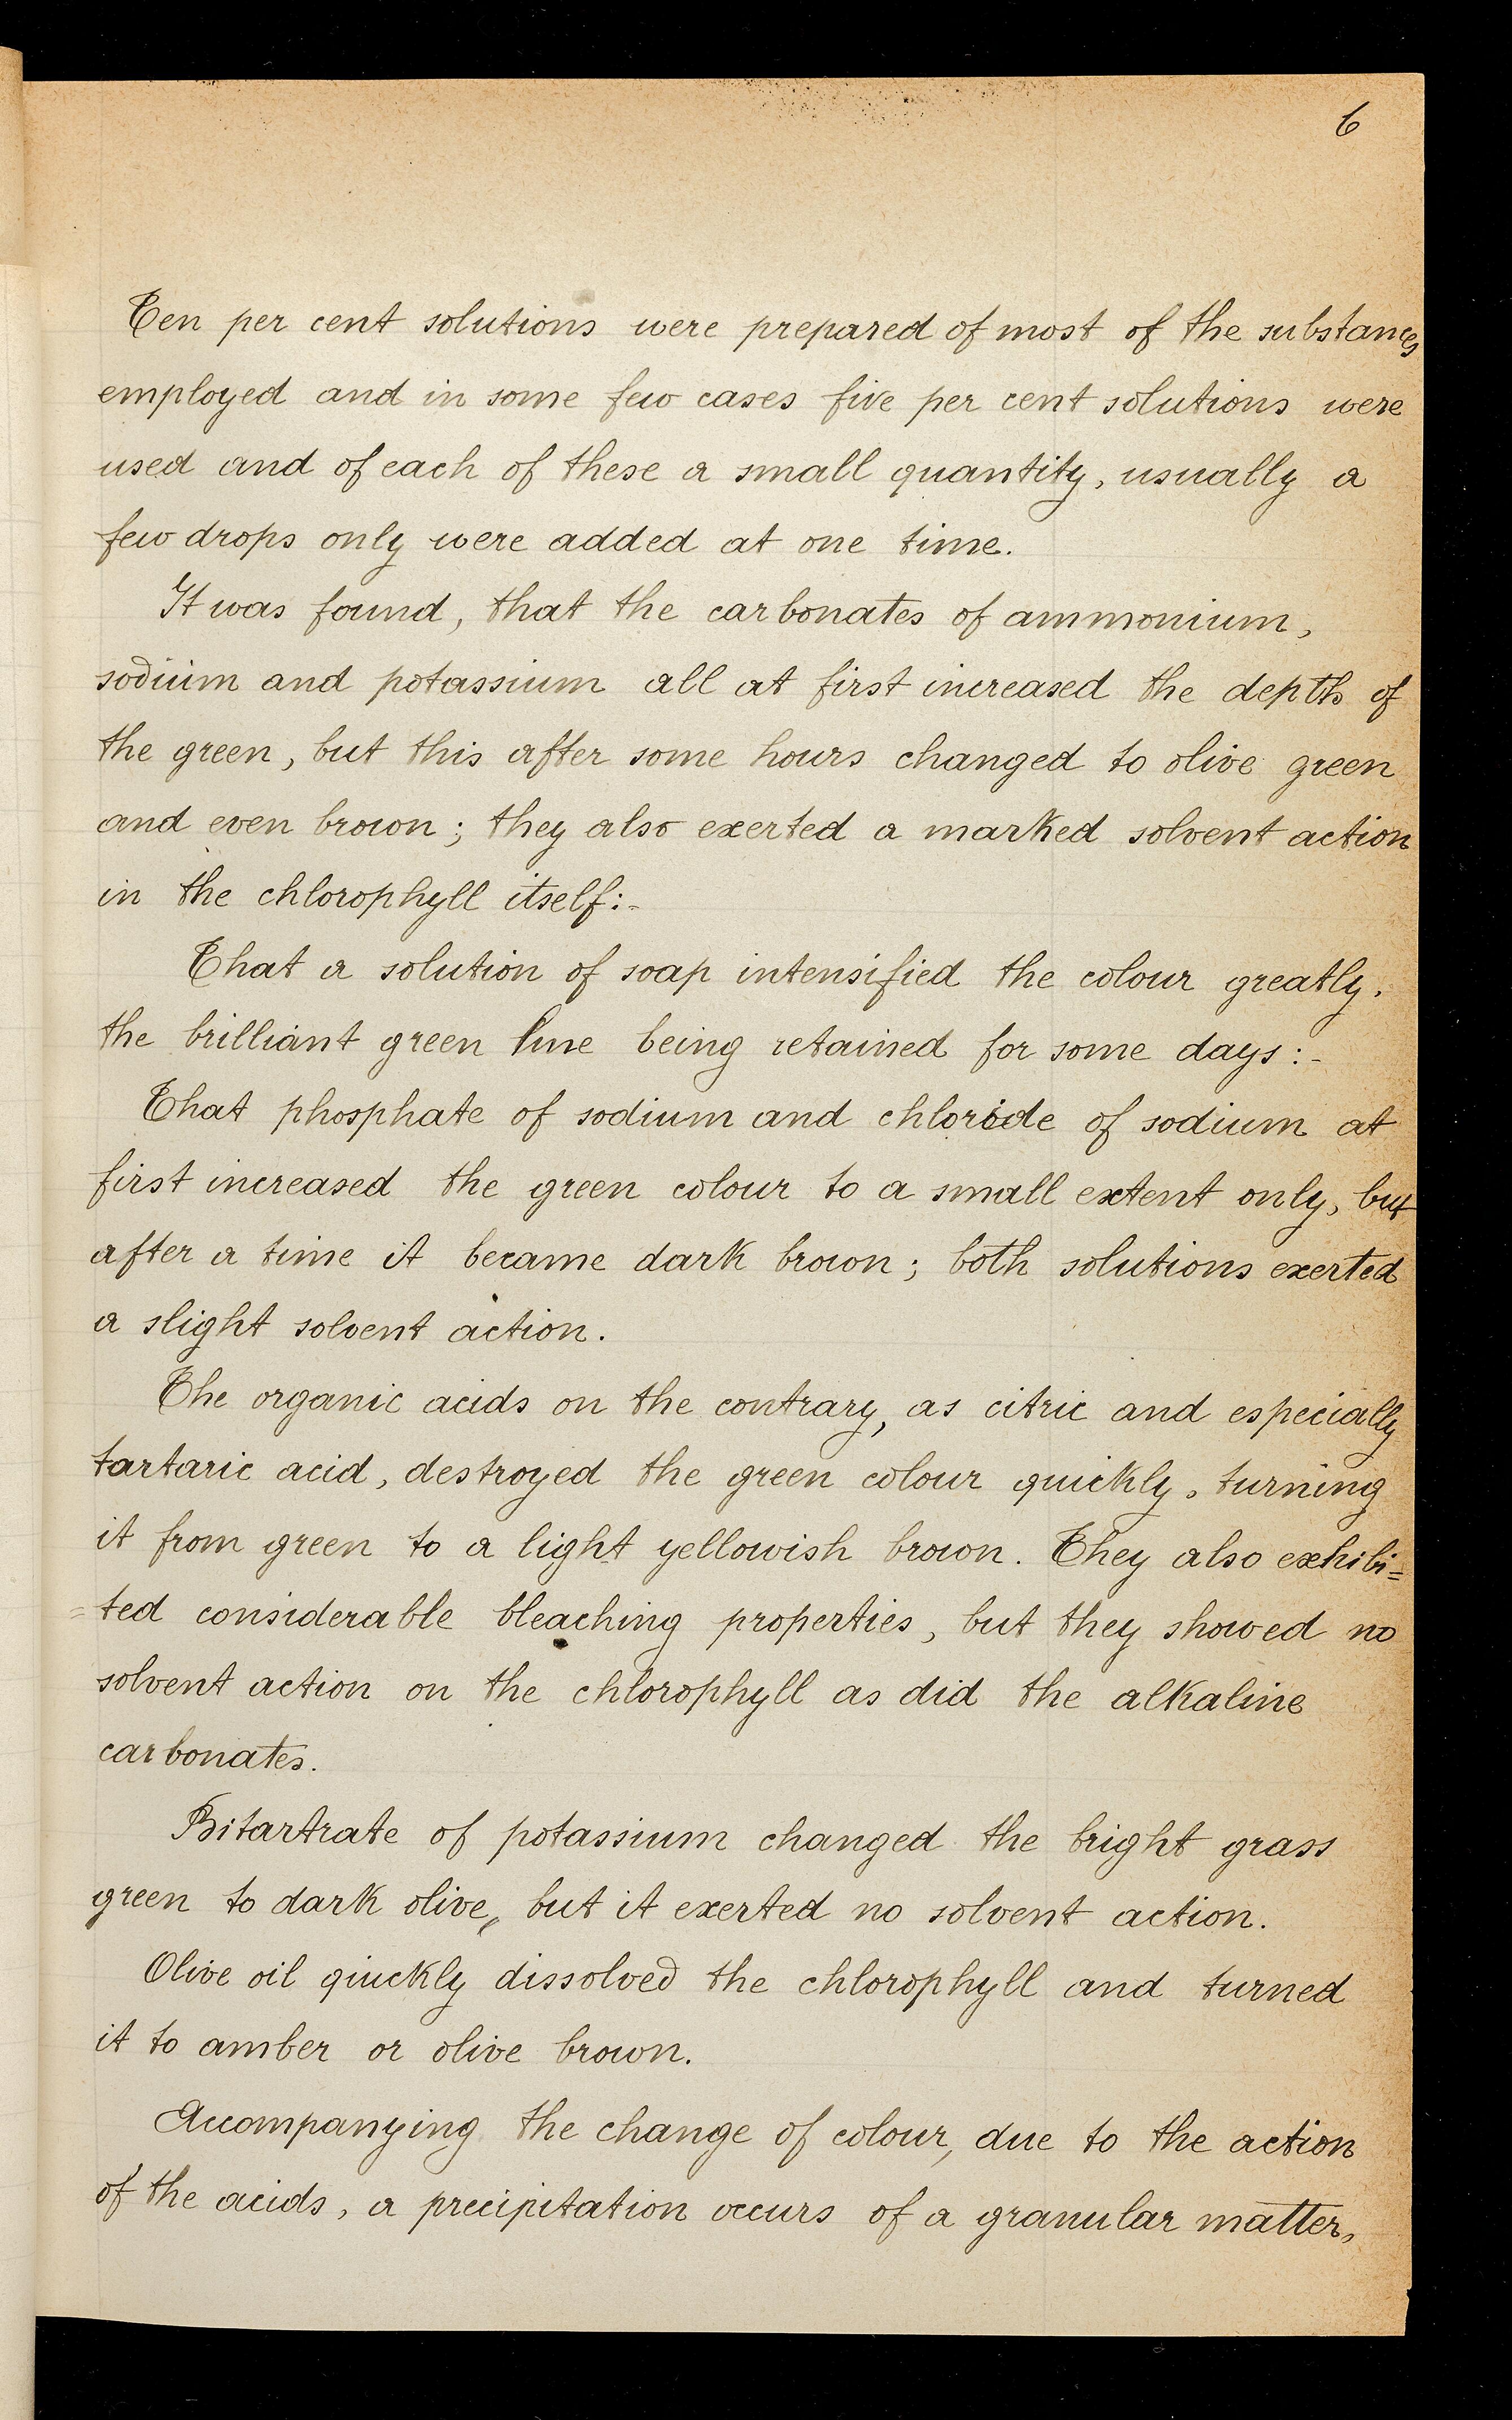 6
Ten per cent solutions were prepared of most of the substances
employed and in some few cases five per cent solutions were
used and of each of these a small quantity, usually a
few drops only were added at one time.
It was found, that the carbonates of ammonium,
sodium and potassium all at first increased the depth of
the green, but this after some hours changed to olive green
and even brown; they also exerted a marked solvent action
in the chlorophyll itself:-
That a solution of soap intensified the colour greatly,
the brilliant green hue being retained for some days:-
That phosphate of sodium and chloride of sodium at
first increased the green colour to a small extent only, but
after a time it became dark brown; both solutions exerted
a slight solvent action.
The organic acids on the contrary, as citric and especially
tartaric acid, destroyed the green colour quickly, turning
it from green to a light yellowish brown. They also exhibi=
=ted considerable bleaching properties, but they showed no
solvent action on the chlorophyll as did the alkaline
carbonates.
Bitartrate of potassium changed the bright grass
green to dark olive, but it exerted no solvent action.
Olive oil quickly dissolved the chlorophyll and turned
it to amber or olive brown.
Accompanying the change of colour, due to the action
of the acids, a precipitation occurs of a granular matter,